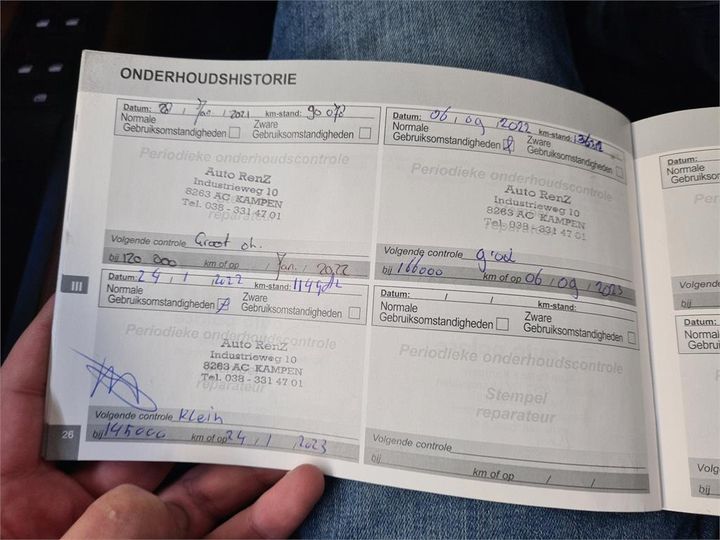 ONDERHOUDSHISTORIE
Datum: 28 , Jan , 2021 km-stand: 90 078
Normale Gebruiksomstandigheden Zware Gebruiksomstandigheden
Periodieke onderhoudscontrole
Auto RenZ
Industrieweg 10
8263 AC KAMPEN
Tel. 038 - 331 47 01
reparateur
Volgende controle Groot oh.
bij 120 000 km of op / Jan , 2022
Datum: 24 , 1 , 2022 km-stand:
Normale Gebruiksomstandigheden Zware Gebruiksomstandigheden
Periodieke onderhoudscontrole
Auto RenZ
Industrieweg 10
8263 AC KAMPEN
Tel. 038 - 331 47 01
reparateur
Volgende controle Klein
bij 145000 km of op 24 , 1 , 2023
Datum: 06 , 09 , 2022 km-stand:
Normale Gebruiksomstandigheden Zware Gebruiksomstandigheden
Periodieke onderhoudscontrole
Auto RenZ
Industrieweg 10
8263 AC KAMPEN
Tel. 038 - 331 47 01
reparateur
Volgende controle
bij 166000 km of op 06 , 09 , 2023
Datum: / / km-stand:
Normale Gebruiksomstandigheden Zware Gebruiksomstandigheden
Periodieke onderhoudscontrole
Stempel
reparateur
Volgende controle
bij km of op / /
III
26
Datum:
Normale
Gebruiksom
Peri
Volgende
bij
Datum:
Normale
Gebruikso
Pe
Volgen
bij